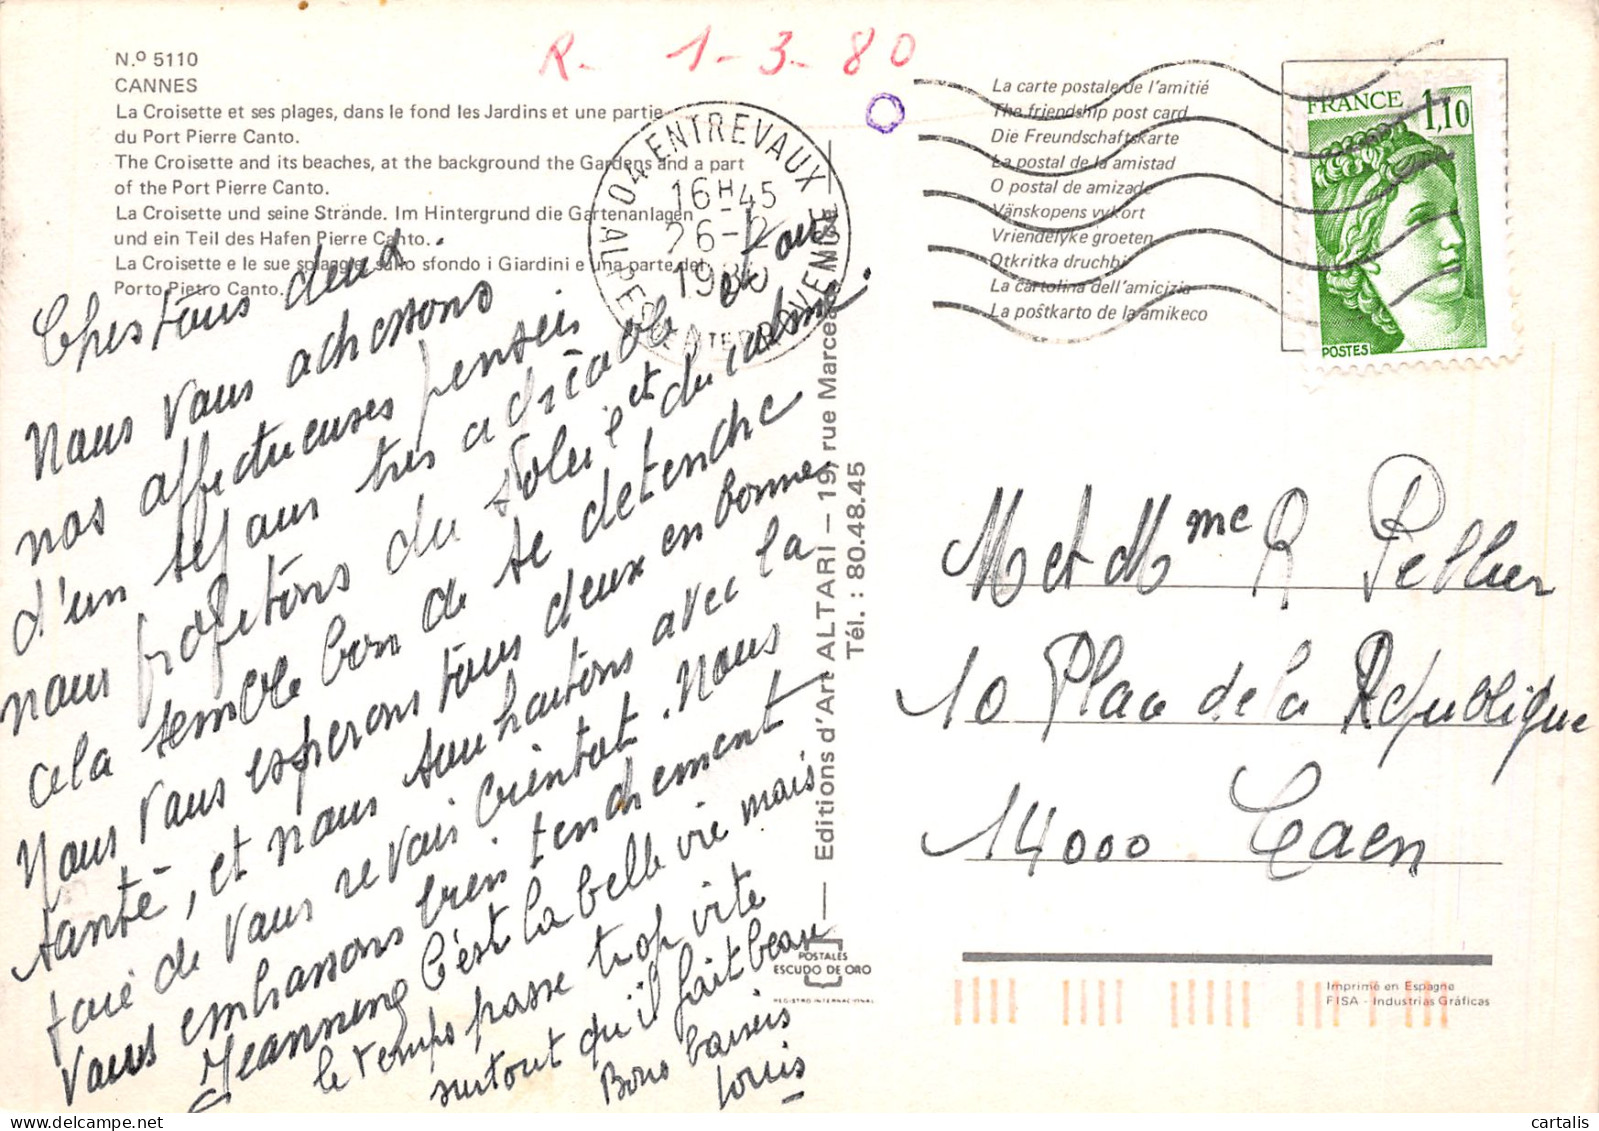 N.º 5110
CANNES
La Croisette et ses plages, dans le fond les Jardins et une partie
du Port Pierre Canto.
The Croisette and its beaches, at the background the Gardens and a part
of the Port Pierre Canto.
La Croisette und seine Strände. Im Hintergrund die Gartenanlagen
und ein Teil des Hafen Pierre Canto.
La Croisette e le sue spiagge, sullo sfondo i Giardini e una parte del
Porto Pietro Canto.
R- 1-3-80
04 ENTREVAUX
16H45
26-2
1980
ALPES DE HAUTE PROVENCE
La carte postale de l'amitié
The friendship post card
Die Freundschaftskarte
La postal de la amistad
O postal de amizade
Vänskopens vykort
Vriendelyke groeten
Otkritka druchbi
La cartolina dell'amicizia
La poŝtkarto de la amikeco
FRANCE 1,10
POSTES
Chers tous deux
Nous vous adressons
nos affectueuses pensées
d'un séjour très agréable et où
nous profitons du soleil et du calme.
cela semble bon de se détendre
Nous vous espérons tous deux en bonne
santé, et nous souhaitons avec la
joie de vous revoir bientôt. Nous
vous embrassons bien tendrement
Jeannine C'est la belle vie mais
le temps passe trop vite
surtout qu'il fait beau
Bons baisers
Louis
Editions d'Art ALTARI – 19, rue Marceau
Tél. : 80.48.45
M et Mme R Pellier
10 Place de la République
14000 Caen
POSTALES
ESCUDO DE ORO
REGISTRO INTERNACIONAL
Imprimé en Espagne
FISA - Industrias Gráficas
cartalis
www.delcampe.net